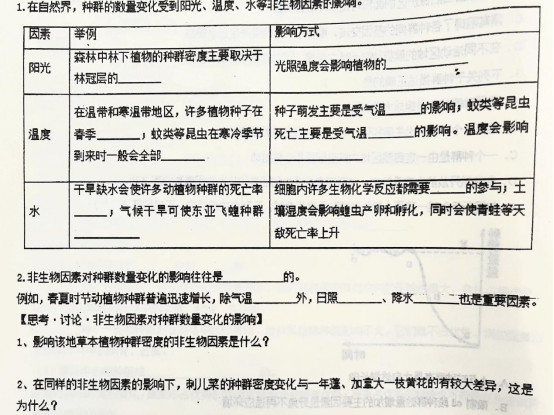 1.在自然界，种群的数量变化受到阳光、温度、水等非生物因素的影响。
因素 举例 影响方式
阳光 森林中林下植物的种群密度主要取决于林冠层的______ 光照强度会影响植物的______
温度 在温带和寒温带地区，许多植物种子在春季______；蚊类等昆虫在寒冷季节到来时一般会全部______ 种子萌发主要是受气温______的影响；蚊类等昆虫死亡主要是受气温______的影响。温度会影响
水 干旱缺水会使许多动植物种群的死亡率______；气候干旱可使东亚飞蝗种群______ 细胞内许多生物化学反应都需要______的参与；土壤湿度会影响蝗虫产卵和孵化，同时会使青蛙等天敌死亡率上升
2.非生物因素对种群数量变化的影响往往是______的。
例如，春夏时节动植物种群普遍迅速增长，除气温______外，日照______、降水______也是重要因素。
【思考·讨论·非生物因素对种群数量变化的影响】
1、影响该地草本植物种群密度的非生物因素是什么？
2、在同样的非生物因素的影响下，刺儿菜的种群密度变化与一年蓬、加拿大一枝黄花的有较大差异，这是
为什么？